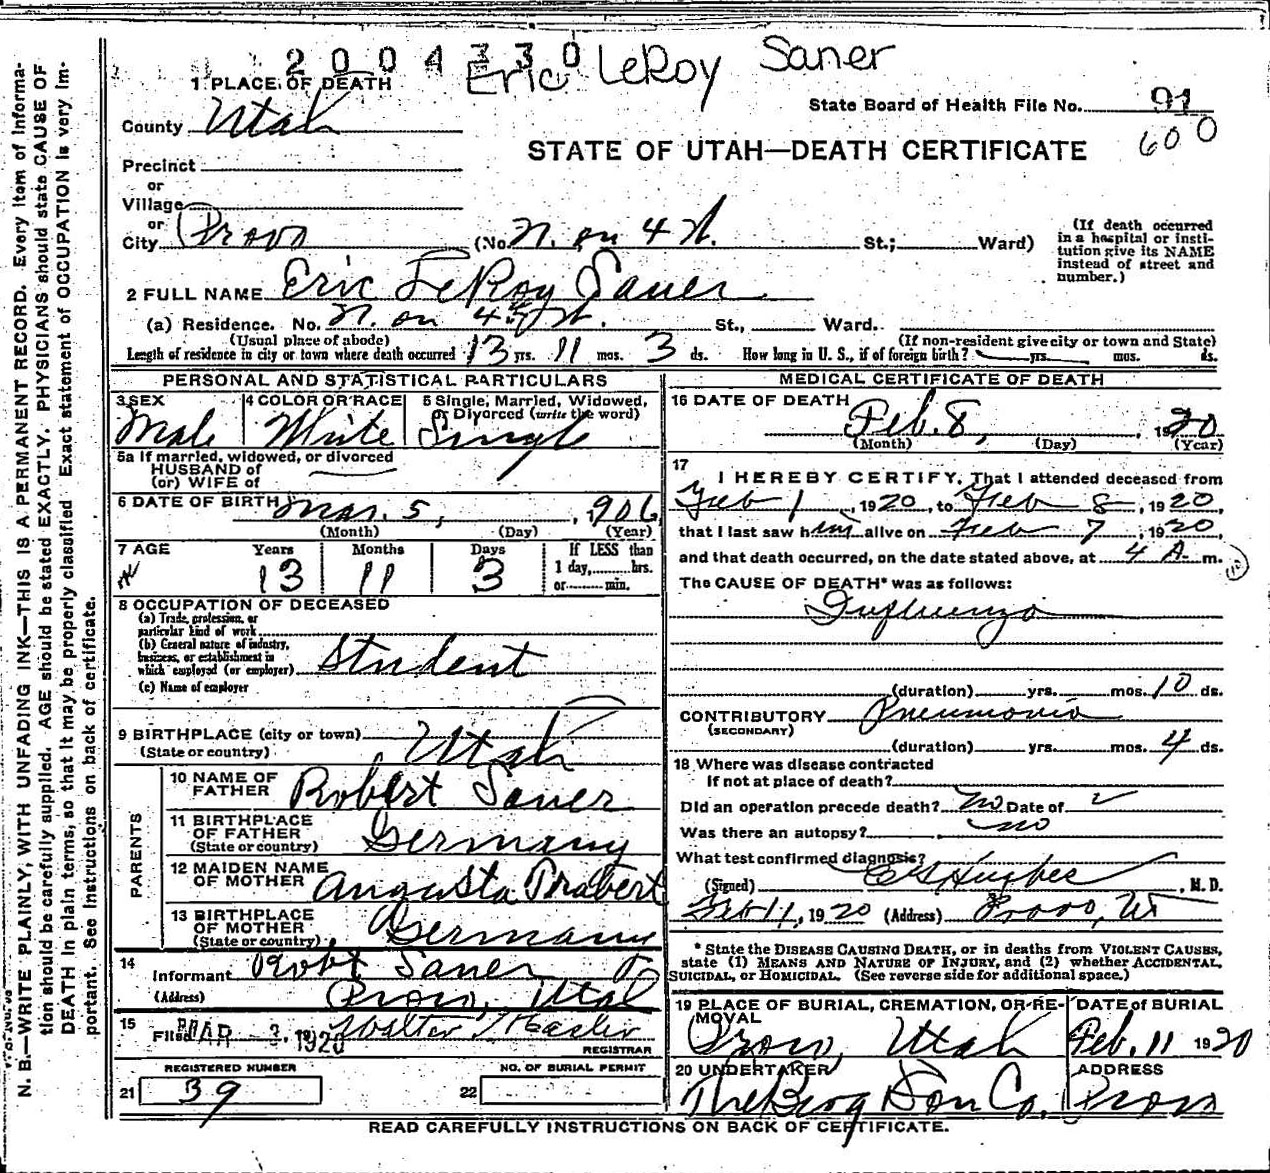 2004330 Eric LeRoy Saner
1 PLACE OF DEATH
State Board of Health File No. 91
County Utah
600
STATE OF UTAH—DEATH CERTIFICATE
Precinct
or
Village
or
City Provo (No. N. on 4 W. St.; Ward)
(If death occurred in a hospital or institution give its NAME instead of street and number.)
2 FULL NAME Eric LeRoy Saner
(a) Residence. No. N. on 4th W. St., Ward.
(Usual place of abode) (If non-resident give city or town and State)
Length of residence in city or town where death occurred 13 yrs. 11 mos. 3 ds. How long in U. S., if of foreign birth? yrs. mos. ds.
PERSONAL AND STATISTICAL PARTICULARS
3 SEX 4 COLOR OR RACE 5 Single, Married, Widowed, or Divorced (write the word)
Male White Single
5a If married, widowed, or divorced
HUSBAND of
(or) WIFE of
6 DATE OF BIRTH Mar. 5, 906
(Month) (Day) (Year)
7 AGE Years Months Days If LESS than
1 day, hrs.
or min.
13 11 3
8 OCCUPATION OF DECEASED
(a) Trade, profession, or
particular kind of work
(b) General nature of industry,
business, or establishment in
which employed (or employer) Student
(c) Name of employer
9 BIRTHPLACE (city or town)
(State or country) Utah
PARENTS
10 NAME OF
FATHER Robert Saner
11 BIRTHPLACE
OF FATHER
(State or country) Germany
12 MAIDEN NAME
OF MOTHER Augusta Probert
13 BIRTHPLACE
OF MOTHER
(State or country) Germany
14
Informant Robt Saner
(Address) Provo, Utah
15
Filed MAR - 3 1920 Walter T Hasler
REGISTRAR
REGISTERED NUMBER NO. OF BURIAL PERMIT
21 39 22
MEDICAL CERTIFICATE OF DEATH
16 DATE OF DEATH
Feb. 8, 1920
(Month) (Day) (Year)
17
I HEREBY CERTIFY, That I attended deceased from
Feb 1, 1920, to Feb 8, 1920,
that I last saw him alive on Feb 7, 1920
and that death occurred, on the date stated above, at 4 A. m.
The CAUSE OF DEATH* was as follows:
Influenza
(duration) yrs. mos. 10 ds.
CONTRIBUTORY Pneumonia
(SECONDARY)
(duration) yrs. mos. 4 ds.
18 Where was disease contracted
If not at place of death?
Did an operation precede death? no Date of
Was there an autopsy? no
What test confirmed diagnosis?
(Signed) C S Hughes, M. D.
Feb 11, 1920 (Address) Provo, Ut
* State the DISEASE CAUSING DEATH, or in deaths from VIOLENT CAUSES,
state (1) MEANS AND NATURE OF INJURY, and (2) whether ACCIDENTAL,
SUICIDAL, or HOMICIDAL. (See reverse side for additional space.)
19 PLACE OF BURIAL, CREMATION, OR RE-MOVAL DATE of BURIAL
Provo, Utah Feb. 11 1920
20 UNDERTAKER ADDRESS
The Berg Son Co. Provo
READ CAREFULLY INSTRUCTIONS ON BACK OF CERTIFICATE.
N. B.—WRITE PLAINLY, WITH UNFADING INK—THIS IS A PERMANENT RECORD. Every item of Informa-
tion should be carefully supplied. AGE should be stated EXACTLY. PHYSICIANS should state CAUSE OF
DEATH in plain terms, so that it may be properly classified. Exact statement of OCCUPATION is very im-
portant. See instructions on back of certificate.